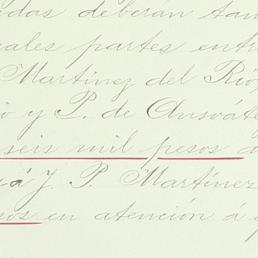 adas deberán tam
uales partes entre
Martínez del Río
io y P. de Ansoáte
seis mil pesos a
iá J. P. Martínez
sos en atención á q